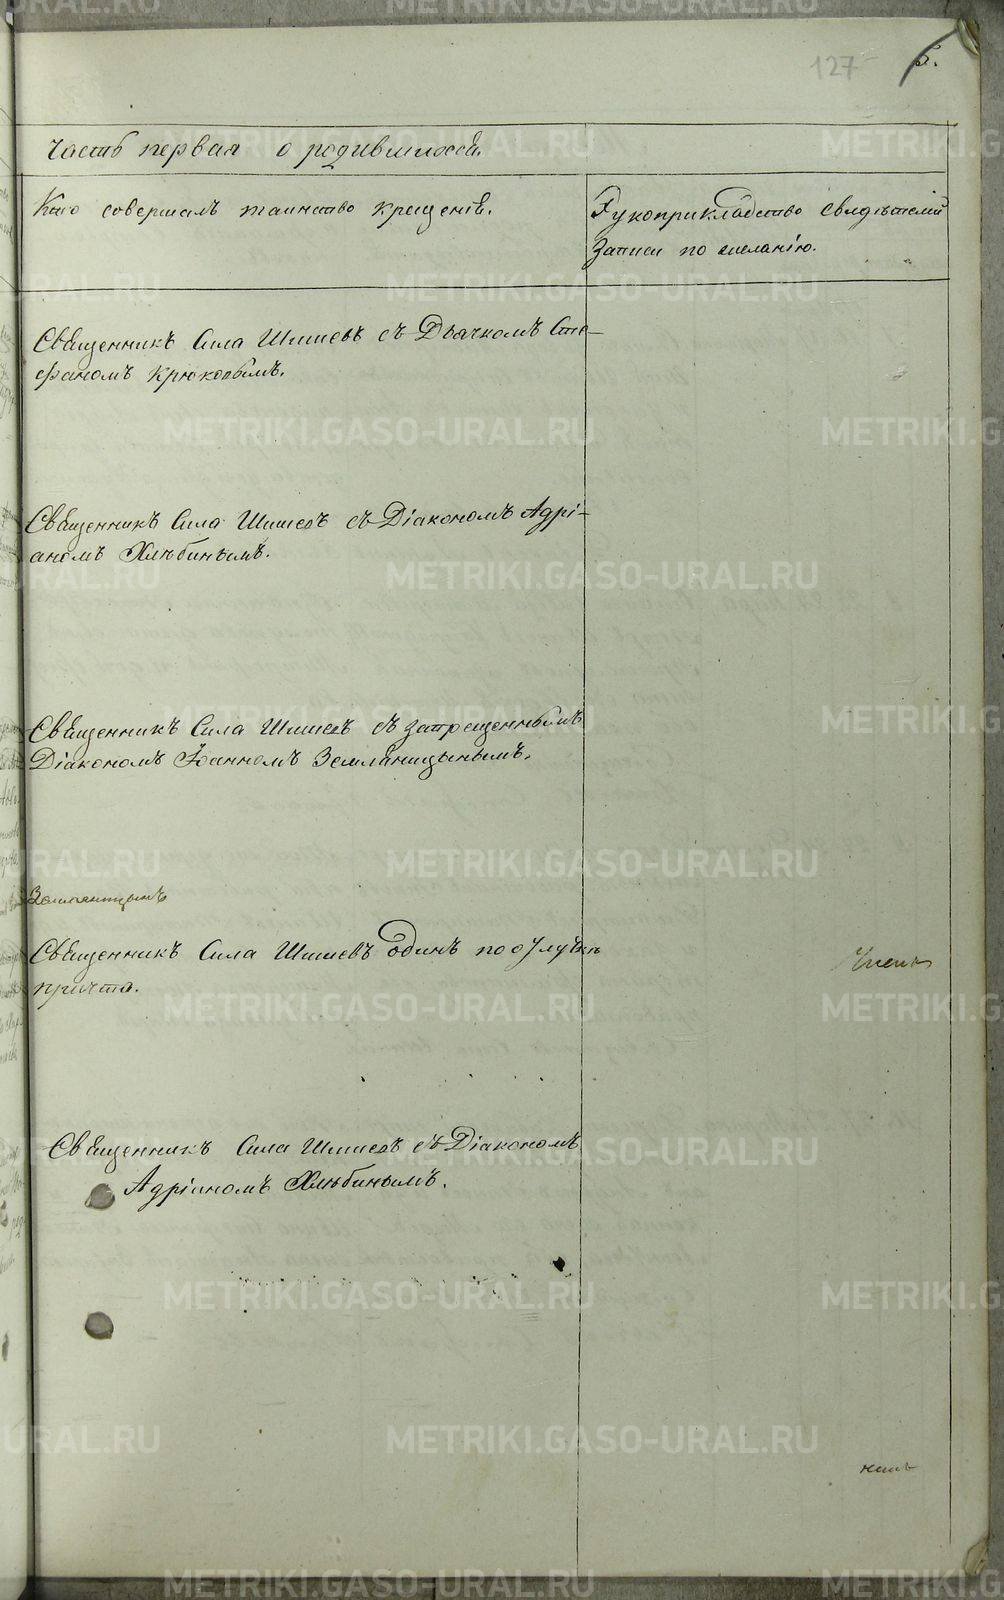 127 5.
Часть первая о родившихся.
Кто совершалъ таинство крещенія.
Рукоприкладство свидѣтелей
записи по желанію.
Священникъ Сила Шишевъ съ Дьячкомъ Сте-
фаномъ Крюковымъ.
Священникъ Сила Шишевъ съ Діакономъ Адрі-
аномъ Хлѣбинымъ.
Священникъ Сила Шишевъ съ запрещеннымъ
Діакономъ Іоанномъ Земляницынымъ.
Священникъ Сила Шишевъ одинъ по отлучкѣ
причта.
Священникъ Сила Шишевъ съ Діакономъ
Адріаномъ Хлѣбинымъ.
METRIKI.GASO-URAL.RU